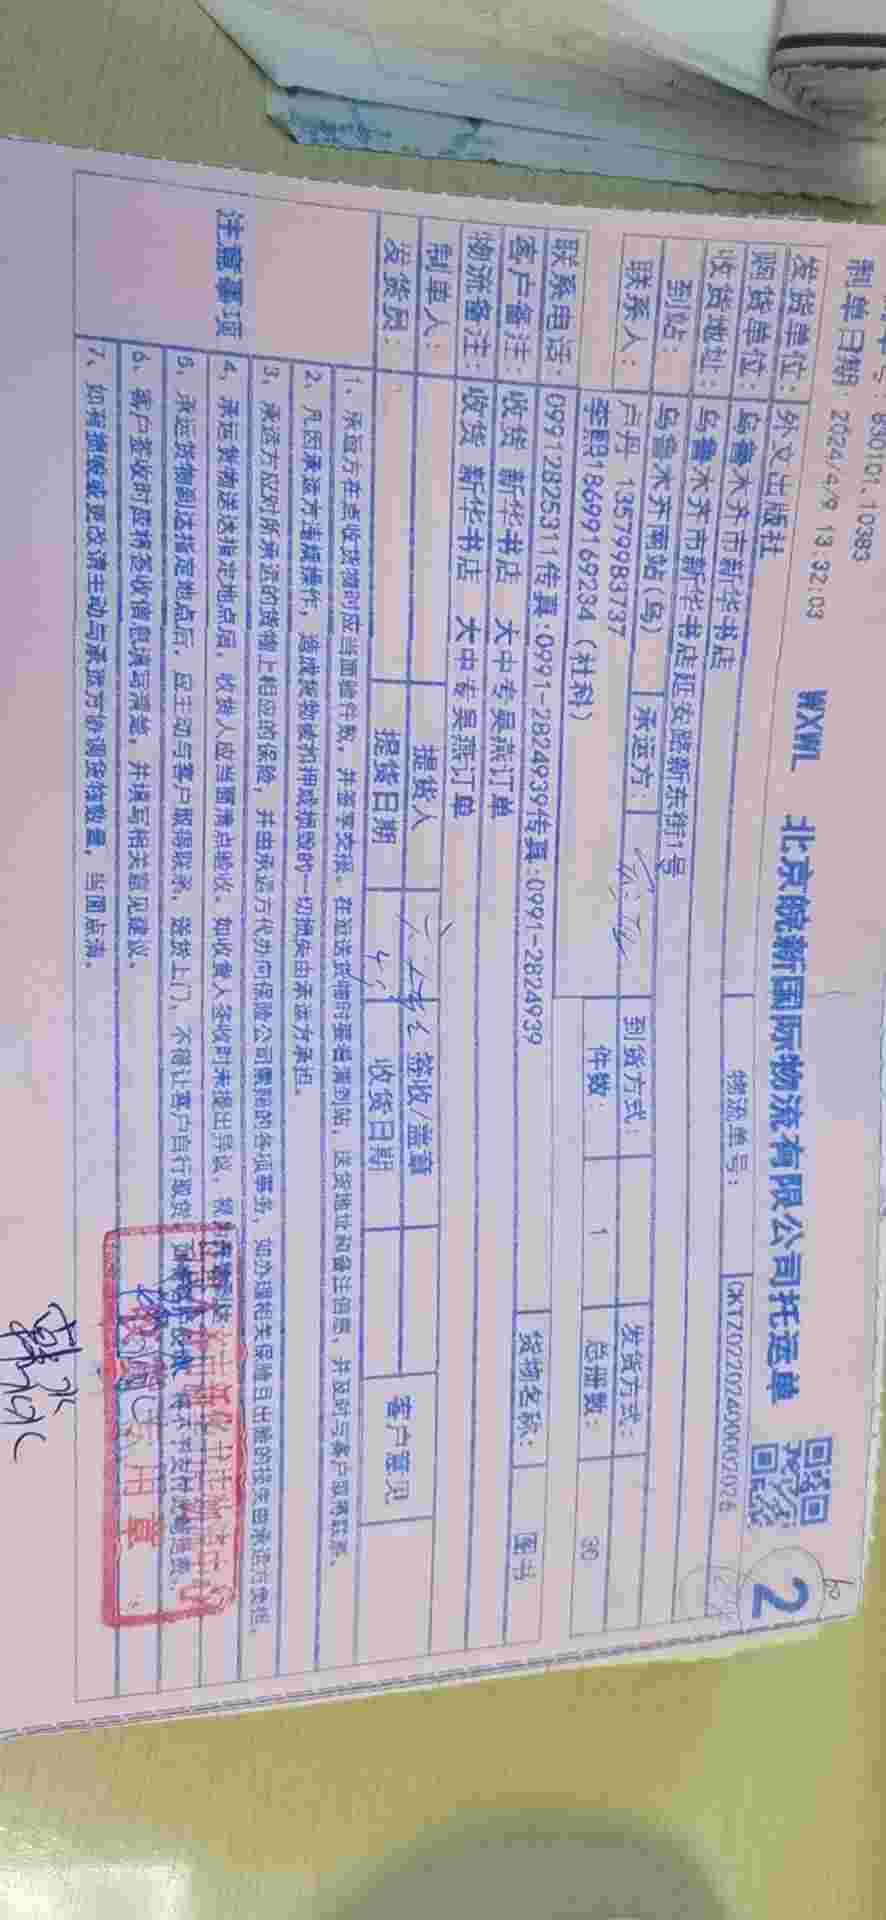 单号：830101.10383
制单日期：2024/4/9 13:32:03 WXWL 北京皖新国际物流有限公司托运单 2
发货单位：外文出版社 物流单号： CKTZ0220240002026
购货单位：乌鲁木齐市新华书店
收货地址：乌鲁木齐市新华书店延安路新东街1号
到站：乌鲁木齐南站(乌) 承运方： 到货方式： 发货方式：
联系人：卢丹 13579983737
李照18699169234 (社科) 件数： 1 总册数： 30
联系电话：0991 2825311传真:0991-2824939传真:0991-2824939 货物名称： 图书
客户备注：收货 新华书店 大中专吴燕订单
物流备注：收货 新华书店 大中专吴燕订单
制单人： 提货人 签收/盖章 客户意见
发货员： 提货日期 收货日期
注意事项
1、承运方在点收货物时应当面验件数，并签字交接。在运送货物时要看清到站、送货地址和备注信息，并及时与客户取得联系。
2、凡因承运方违规操作，造成货物被扣押或损毁的一切损失由承运方承担。
3、承运方应对所承运的货物上相应的保险，并由承运方代办向保险公司索赔的各项事务，如办理相关保险且出险的损失由承运方负担。
4、承运货物送达指定地点后，收货人应当面清点验收。如收货人签收时未提出异议，视为
5、承运货物到达指定地点后，应主动与客户取得联系，送货上门，不得让客户自行取货，
6、客户签收时应将签收信息填写清楚，并填写相关意见建议。
7、如有拖板或更改请主动与承运方协调货物数量，当面点清。